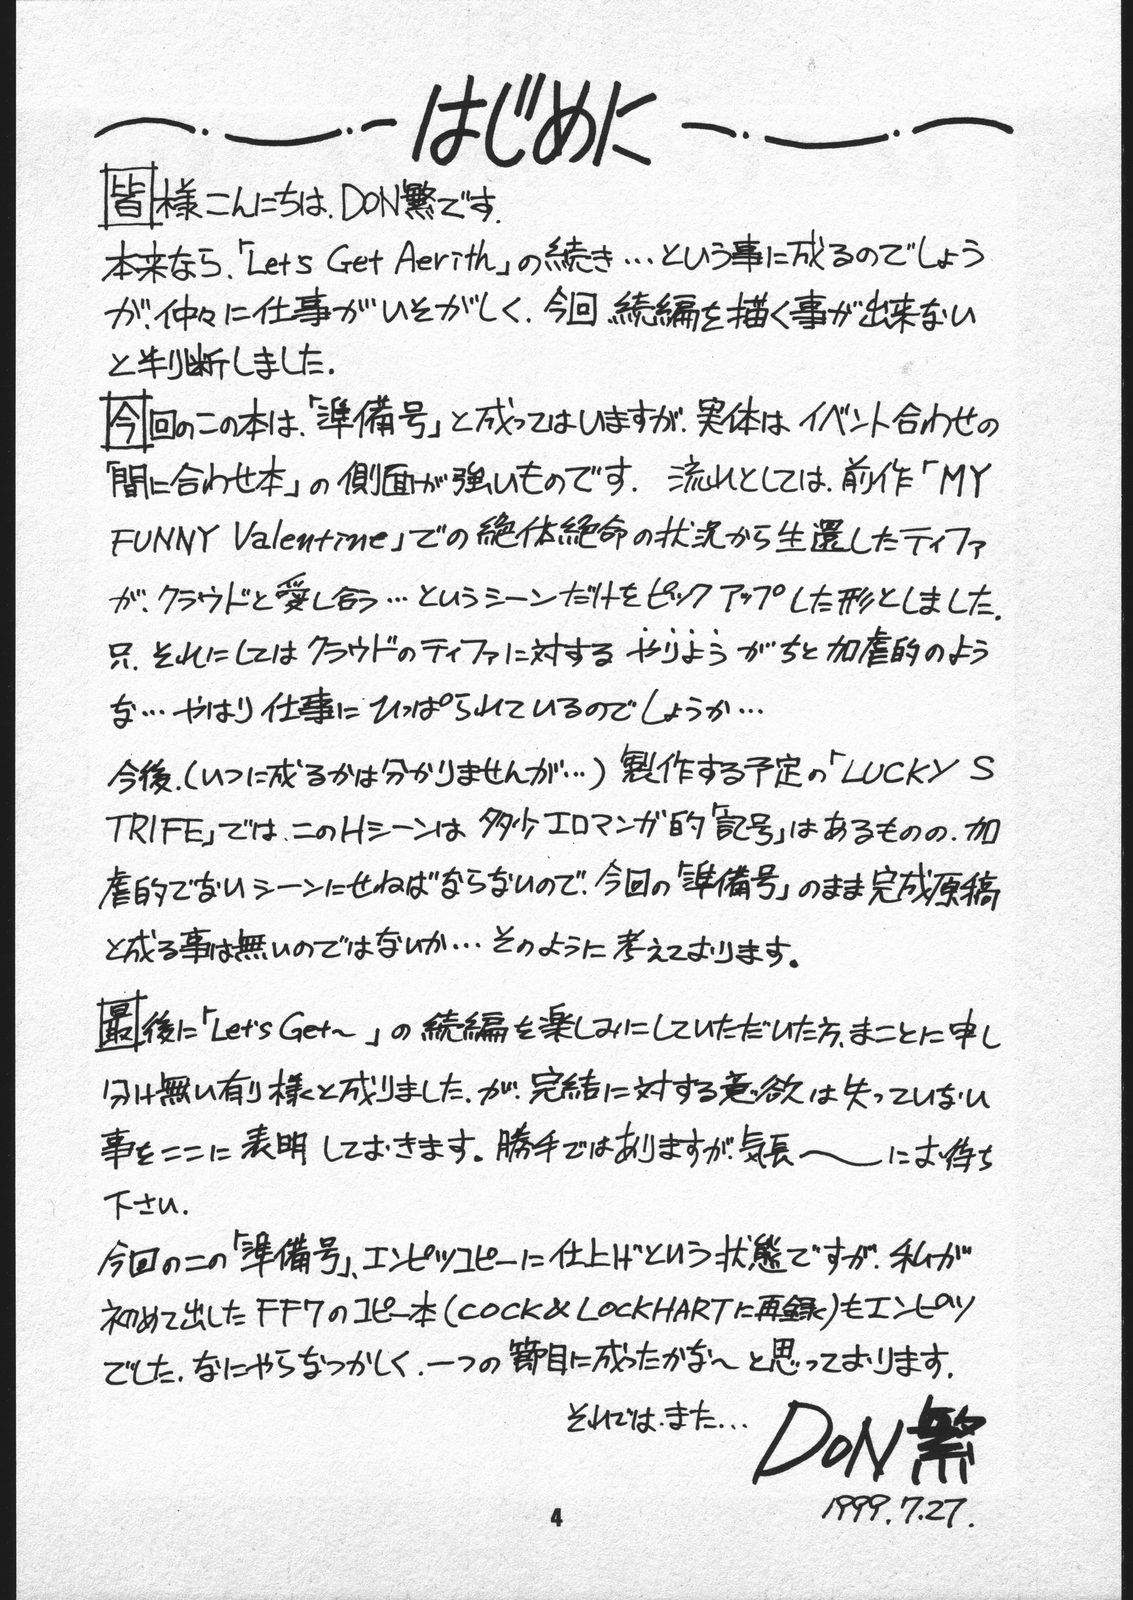 はじめに
皆様こんにちは、DON繁です.
本来なら、「Let's Get Aerith」の続き…という事に成るのでしょう
が、仲々に仕事がいそがしく、今回 続編を描く事が出来ない
と判断しました.
今回のこの本は、「準備号」と成ってはいますが、実体は イベント合わせの
「間に合わせ本」の側面が強いものです. 流れとしては、前作「MY
FUNNY Valentine」での絶体絶命の状況から生還したティファ
が、クラウドと愛し合う…というシーンだけをピックアップした形としました.
只、それにしてはクラウドのティファに対する やりよう がちと加虐的のよう
な…やはり仕事にひっぱられているのでしょうか…
今後、(いつに成るかは分かりませんが…) 製作する予定の「LUCKY S
TRIFE」では、このHシーンは 多少エロマンガ的「記号」はあるものの、加
虐的でないシーンにせねばならないので、今回の「準備号」のまま完成原稿
と成る事は無いのではないか…そのように考えております。
最後に「Let's Get〜」の続編を楽しみにしていただいた方、まことに申し
分け無い有り様と成りました、が、完結に対する意欲は失っていない
事をここに表明しておきます。勝手ではありますが、気長〜にお待ち
下さい.
今回のこの「準備号」、エンピツコピーに仕上げという状態ですが、私が
初めて出したFF7のコピー本(COCK&LOCKHARTに再録)もエンピツ
でした、なにやらなつかしく、一つの節目に成ったかな〜と思っております.
それでは、また…
DON繁
1999.7.27.
4